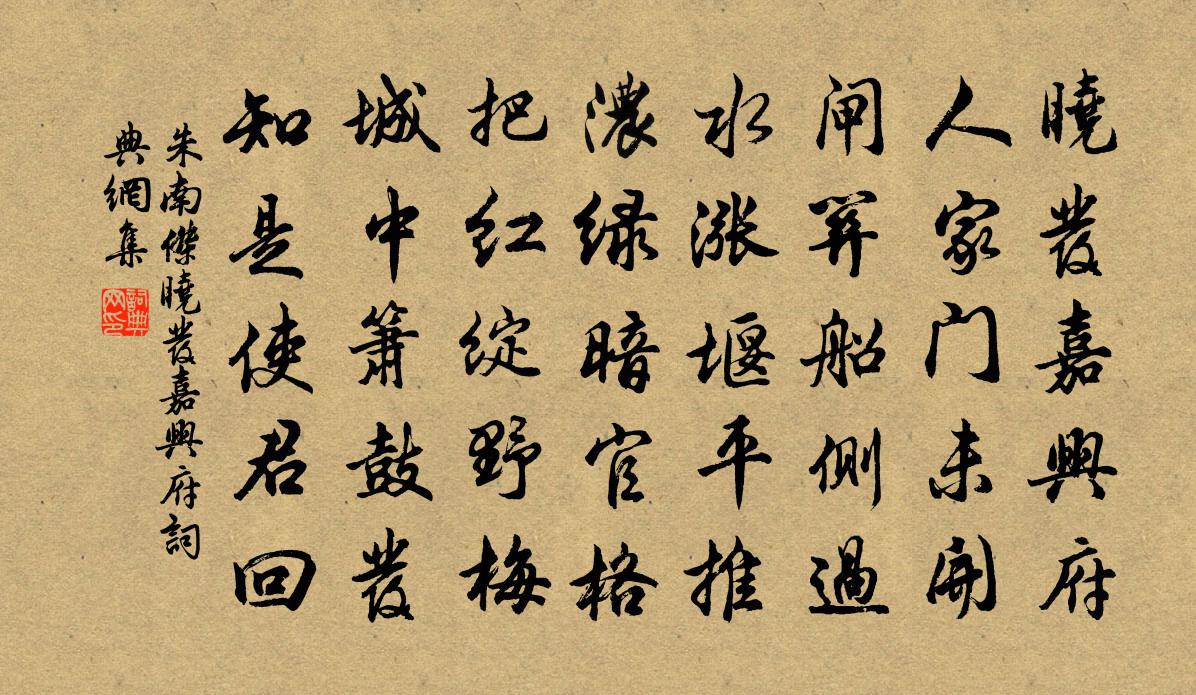 曉發嘉興府
人家门未開
闸開船側過
水漲堰平推
濃緑暗官格
把紅綻野梅
城中簫鼓發
知是使君回
朱南傑曉發嘉興府詞
典網集
詞典
网印